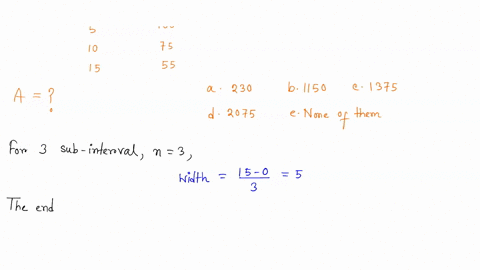 10 75
15 55
A = ?
a. 230 b. 1150 c. 1375
d. 2075 e. None of them
For 3 sub-interval, n = 3,
Width = \frac{15-0}{3} = 5
The end